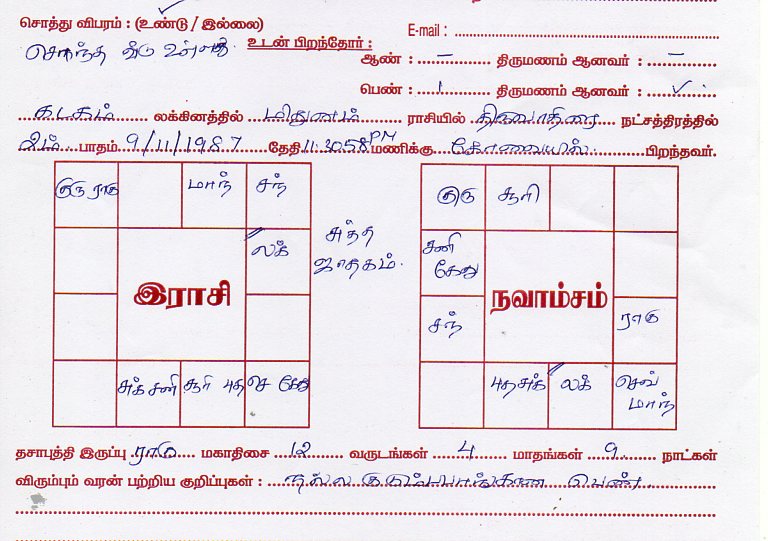 சொத்து விபரம் : (உண்டு / இல்லை)
E-mail :
சொந்த வீடு உள்ளது
உடன் பிறந்தோர் :
ஆண் : – திருமணம் ஆனவர் : –
பெண் : 1 திருமணம் ஆனவர் : ✓
கடகம் லக்கினத்தில் மிதுனம் ராசியில் திருவாதிரை நட்சத்திரத்தில்
2ம் பாதம் 9/11/1987 தேதி 11.30.58 PM மணிக்கு கோவையில் பிறந்தவர்.
குரு ராகு மாந் சந்
லக்
இராசி
சுக் சனி சூரி புத செ கேது
சுத்த
ஜாதகம்.
குரு சூரி
சனி
கேது
நவாம்சம்
சந் ராகு
புத சுக் லக் செவ்
மாந்
தசாபுத்தி இருப்பு ராகு மகாதிசை 12 வருடங்கள் 4 மாதங்கள் 9 நாட்கள்
விரும்பும் வரன் பற்றிய குறிப்புகள் : நல்ல குடும்பபாங்கான பெண்